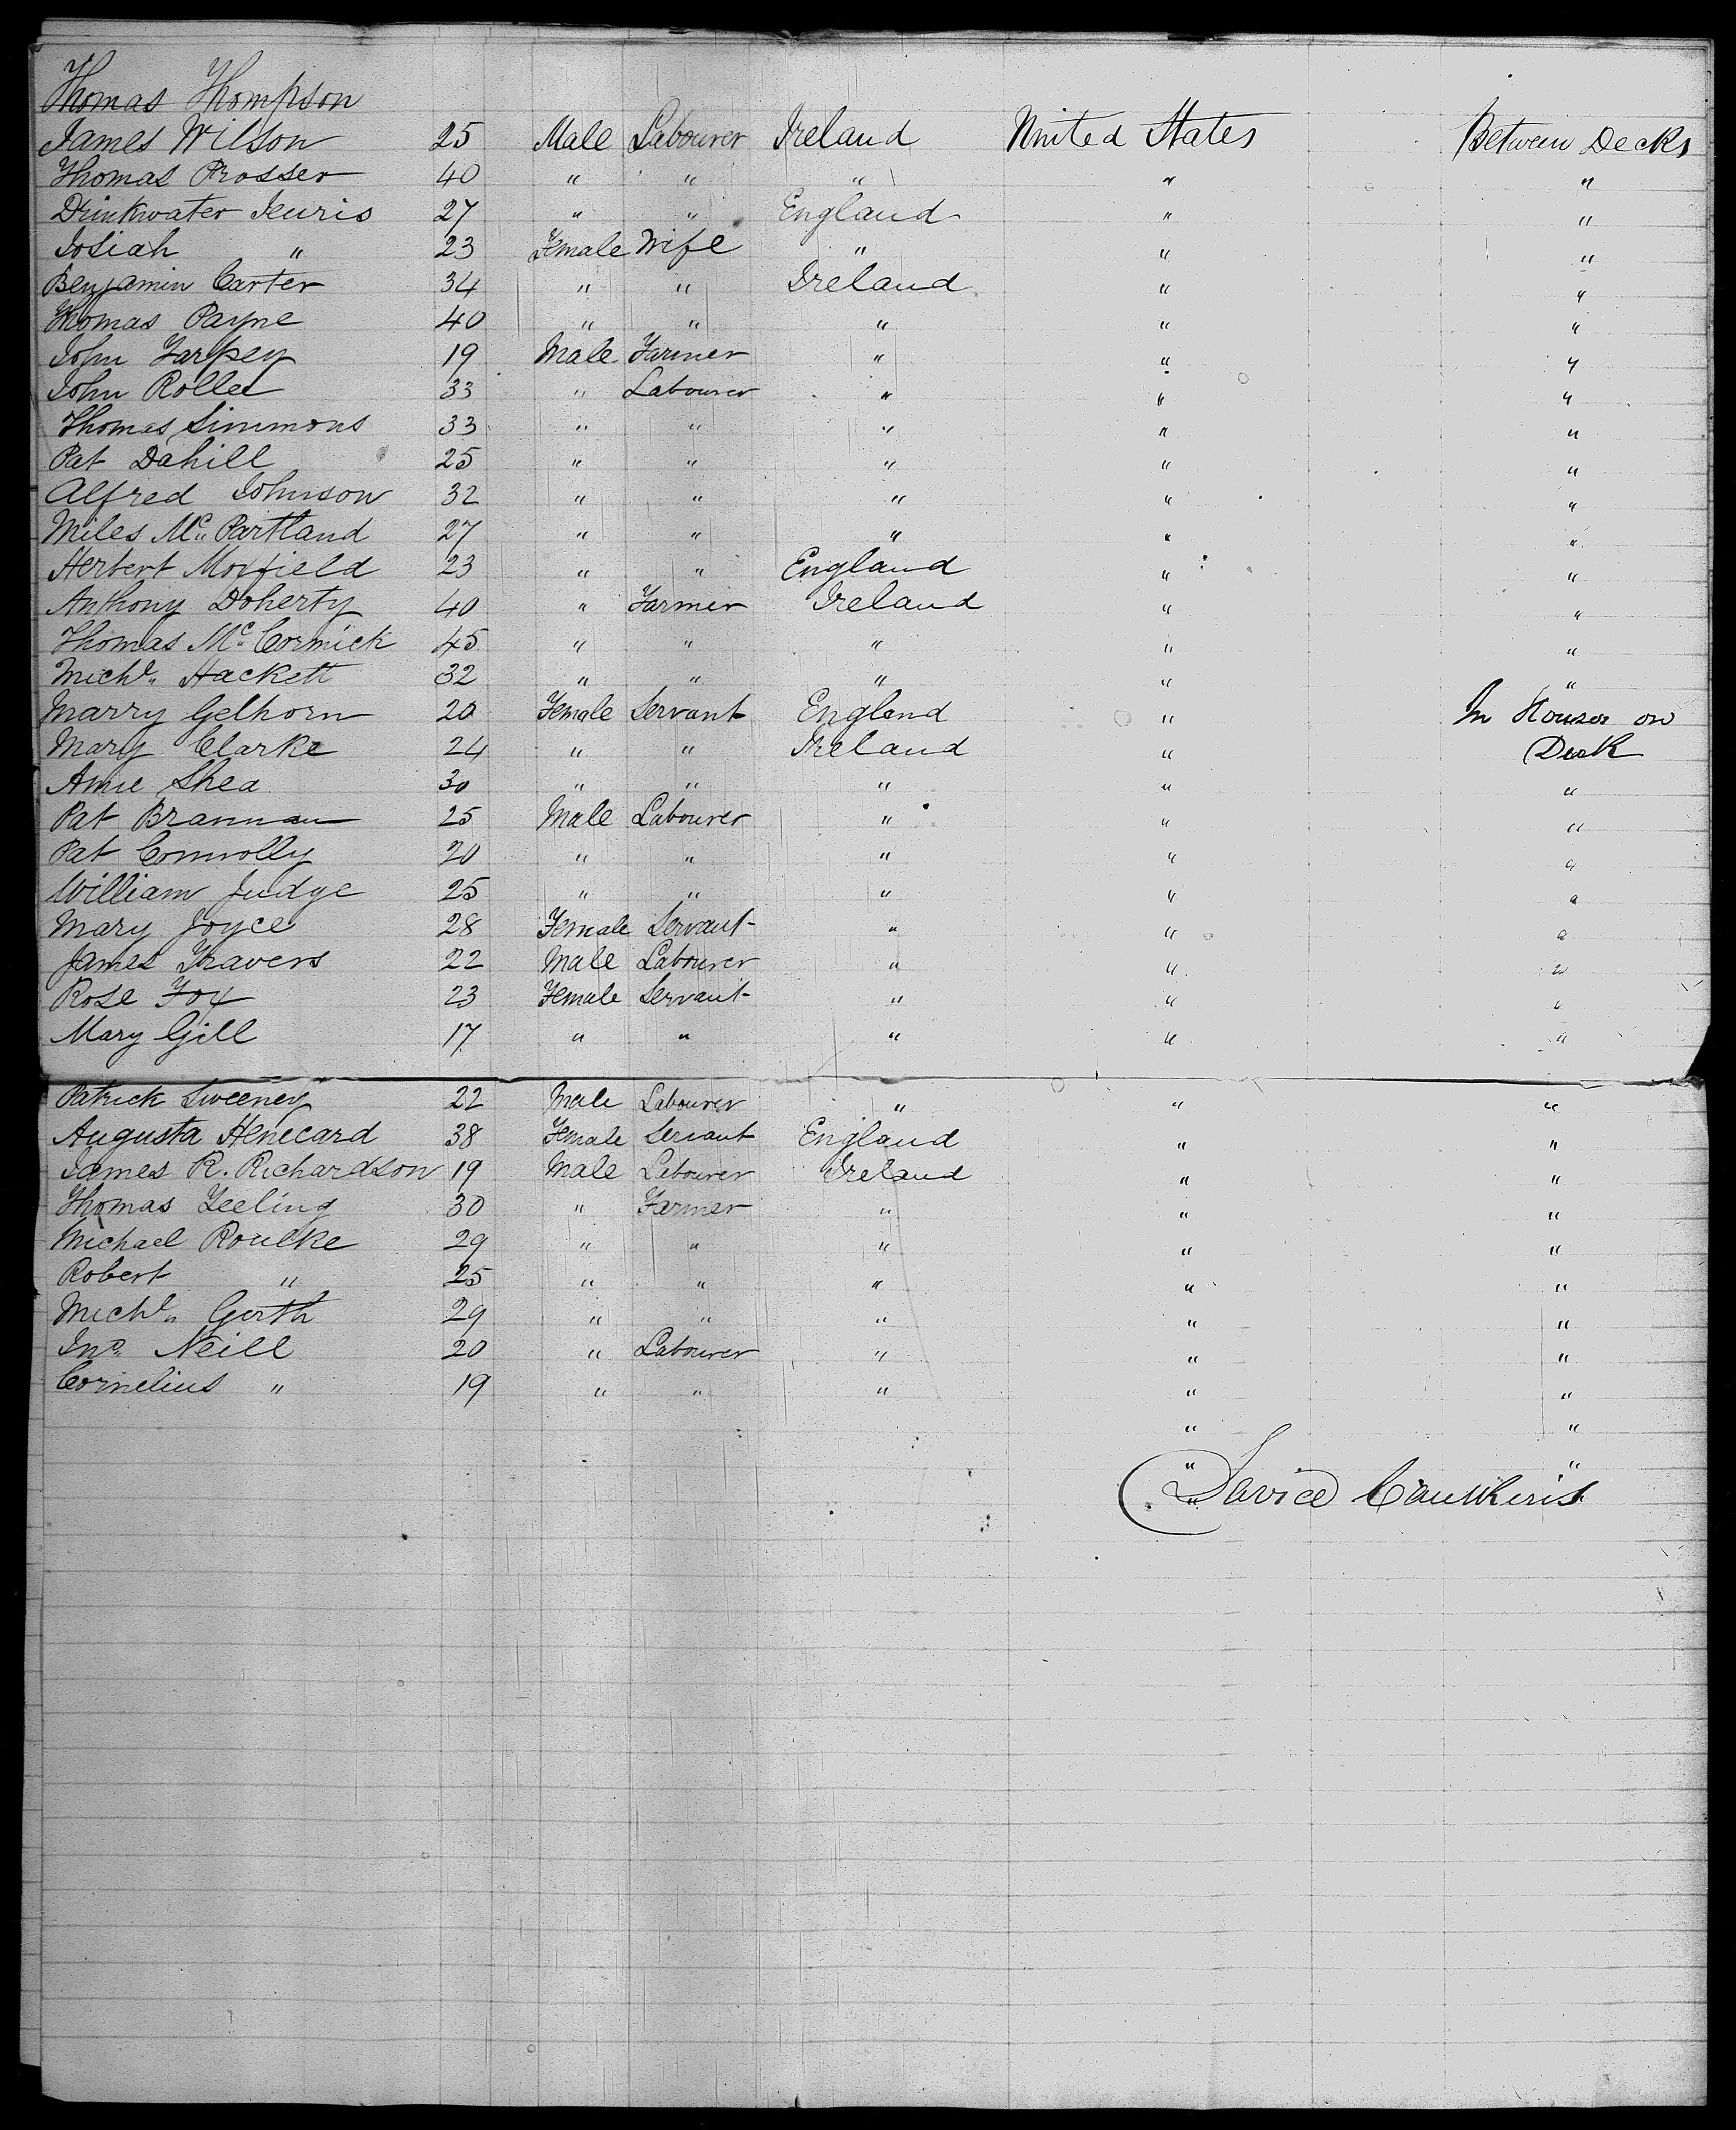 Thomas Thompson
James Wilson 25 Male Labourer Ireland United States Between Decks
Thomas Prosser 40 " " " " "
Drinkwater 27 " " England " "
Josiah " 23 Female Wife " " "
Benjamin Carter 34 " " Ireland " "
Thomas Payne 40 " " " " "
John Tarpey 19 Male Farmer " " "
John 33 " Labourer " " "
Thomas Simmons 33 " " " " "
Pat Dahill 25 " " " " "
Alfred Johnson 32 " " " " "
Miles Mc Partland 27 " " " " "
Herbert 23 " " England " "
Anthony Doherty 40 " Farmer Ireland " "
Thomas Mc Cormick 45 " " " " "
Michl Hackett 32 " " " " "
Marry Gelhorn 20 Female Servant England " In House on
Mary Clarke 24 " " Ireland " Deck
Annie Shea 30 " " " " "
Pat Brannan 25 Male Labourer " " "
Pat Connolly 20 " " " " "
William Judge 25 " " " " "
Mary Joyce 28 Female Servant " " "
James Travers 22 Male Labourer " " "
Rose Fox 23 Female Servant " " "
Mary Gill 17 " " " " "
Patrick Sweeney 22 Male Labourer " " "
Augusta Henecard 38 Female Servant England " "
James R. Richardson 19 Male Labourer Ireland " "
Thomas 30 " Farmer " " "
Michael Roulke 29 " " " " "
Robert " 25 " " " " "
Michl 29 " " " " "
Jno Neill 20 " Labourer " " "
Cornelius " 19 " " " " "
" "
" "
" David